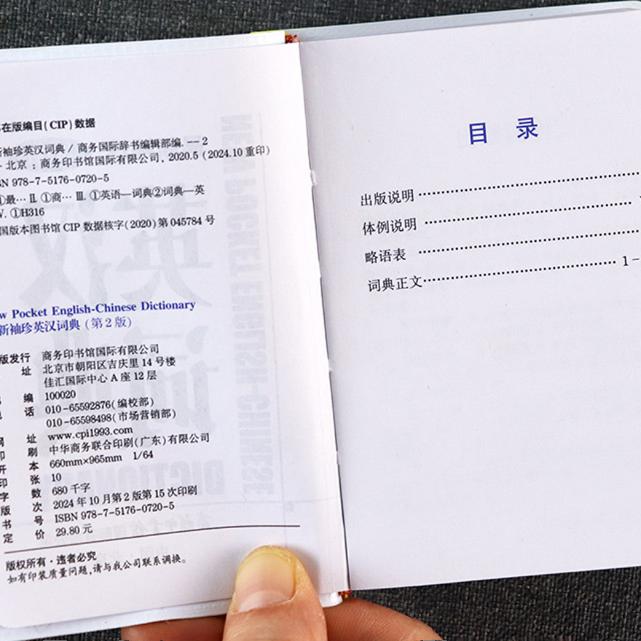 在版编目(CIP)数据
新袖珍英汉词典 / 商务国际辞书编辑部编. —2
北京：商务印书馆国际有限公司, 2020.5 (2024.10 重印)
ISBN 978-7-5176-0720-5
①最… Ⅱ. ①商… Ⅲ. ①英语—词典②词典—英
Ⅳ. ①H316
国版本图书馆 CIP 数据核字(2020)第 045784 号
Pocket English-Chinese Dictionary
新袖珍英汉词典 (第 2 版)
版发行 商务印书馆国际有限公司
址 北京市朝阳区吉庆里 14 号楼
佳汇国际中心 A 座 12 层
编 100020
话 010-65592876(编校部)
010-65598498(市场营销部)
网 址 www.cpi1993.com
印 刷 中华商务联合印刷(广东)有限公司
开 本 660mm×965mm 1/64
印 张 10
字 数 680 千字
版 次 2024 年 10 月第 2 版第 15 次印刷
书 号 ISBN 978-7-5176-0720-5
定 价 29.80 元
版权所有·违者必究
如有印装质量问题,请与我公司联系调换。
目 录
出版说明
体例说明
略语表
词典正文 1-